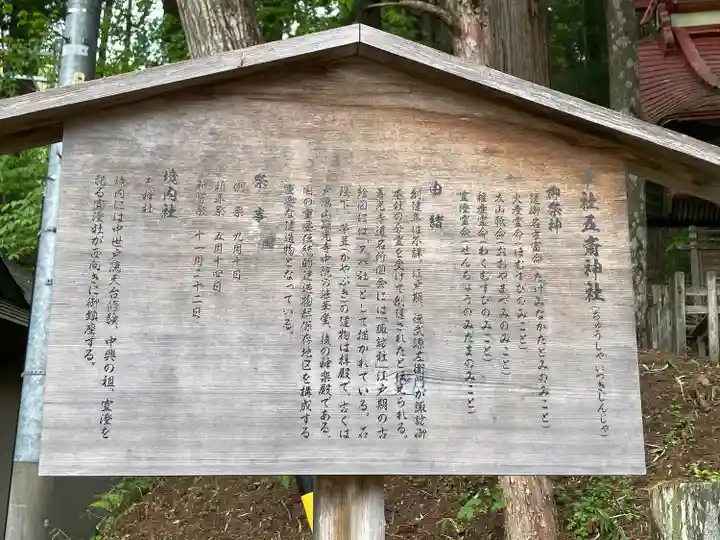 中社五斎神社(ちゅうしゃ いつきじんじゃ)
御祭神
健御名方富命(たけみなかたとみのみこと)
火産霊命(ほむすびのみこと)
大山祇命(おおやまづみのみこと)
稚産霊命(わくむすびのみこと)
宣澄霊命(せんちょうのみたまのみこと)
由緒
創建年は不詳。江戸期、徳武源左衛門が諏訪御
本社の分霊を受けて創建されたと伝えられる。
善光寺道名所図会には「諏訪社」江戸期の古
絵図には「スハ社」として描かれている。石
段下、茅葺(かやぶき)の建物は拝殿で、古くは
戸隠山顕光寺中院の法華堂、後の神楽殿である。
国の重要伝統的建造物群保存地区を構成する
重要な建造物となっている。
祭事
例祭 九月十日
祈年祭 五月十四日
新嘗祭 十一月二十二日
境内社
宣澄社
境内には中世戸隠天台修験、中興の祖、宣澄を
祀る宣澄社が西向きに御鎮座する。